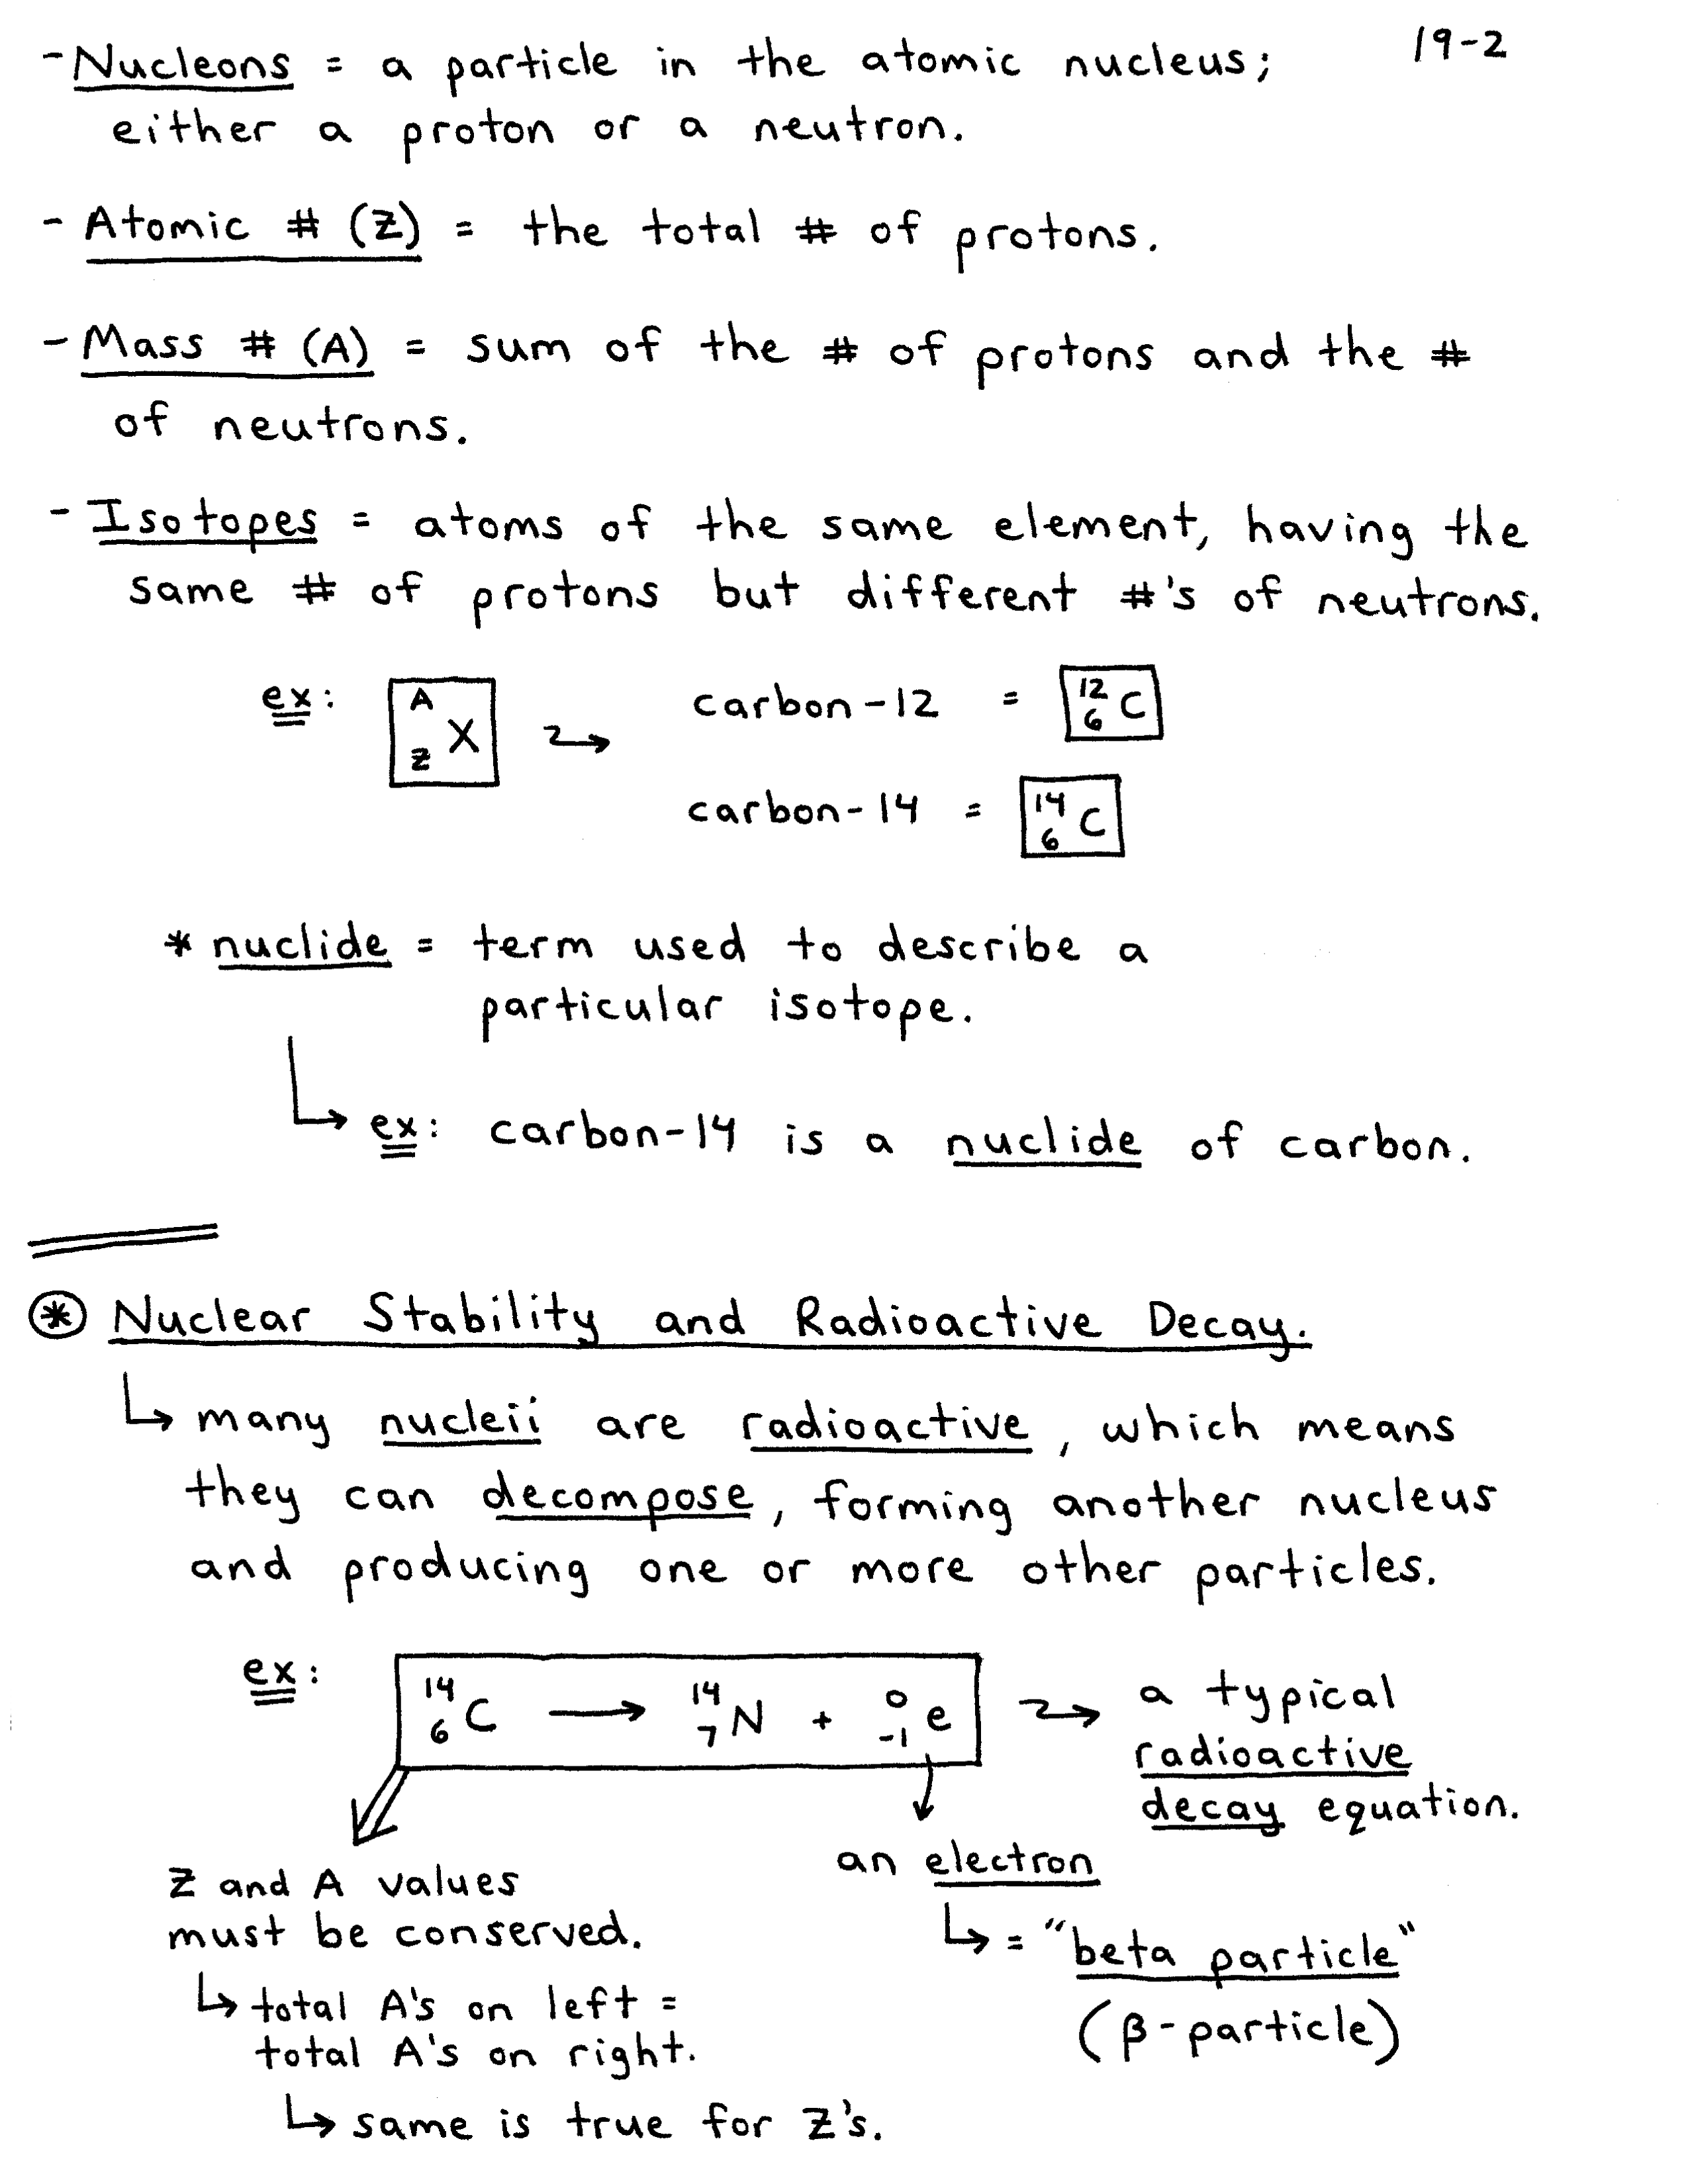 19-2
- Nucleons = a particle in the atomic nucleus;
either a proton or a neutron.
- Atomic # (Z) = the total # of protons.
- Mass # (A) = sum of the # of protons and the #
of neutrons.
- Isotopes = atoms of the same element, having the
same # of protons but different #'s of neutrons.
ex: A Z X → carbon-12 = 12 6 C
carbon-14 = 14 6 C
* nuclide = term used to describe a
particular isotope.
↳ ex: carbon-14 is a nuclide of carbon.
⊛ Nuclear Stability and Radioactive Decay.
↳ many nucleii are radioactive, which means
they can decompose, forming another nucleus
and producing one or more other particles.
ex: 14 6 C → 14 7 N + 0 -1 e → a typical
radioactive
decay equation.
an electron
↳ = "beta particle"
(β-particle)
Z and A values
must be conserved.
↳ total A's on left =
total A's on right.
↳ same is true for Z's.